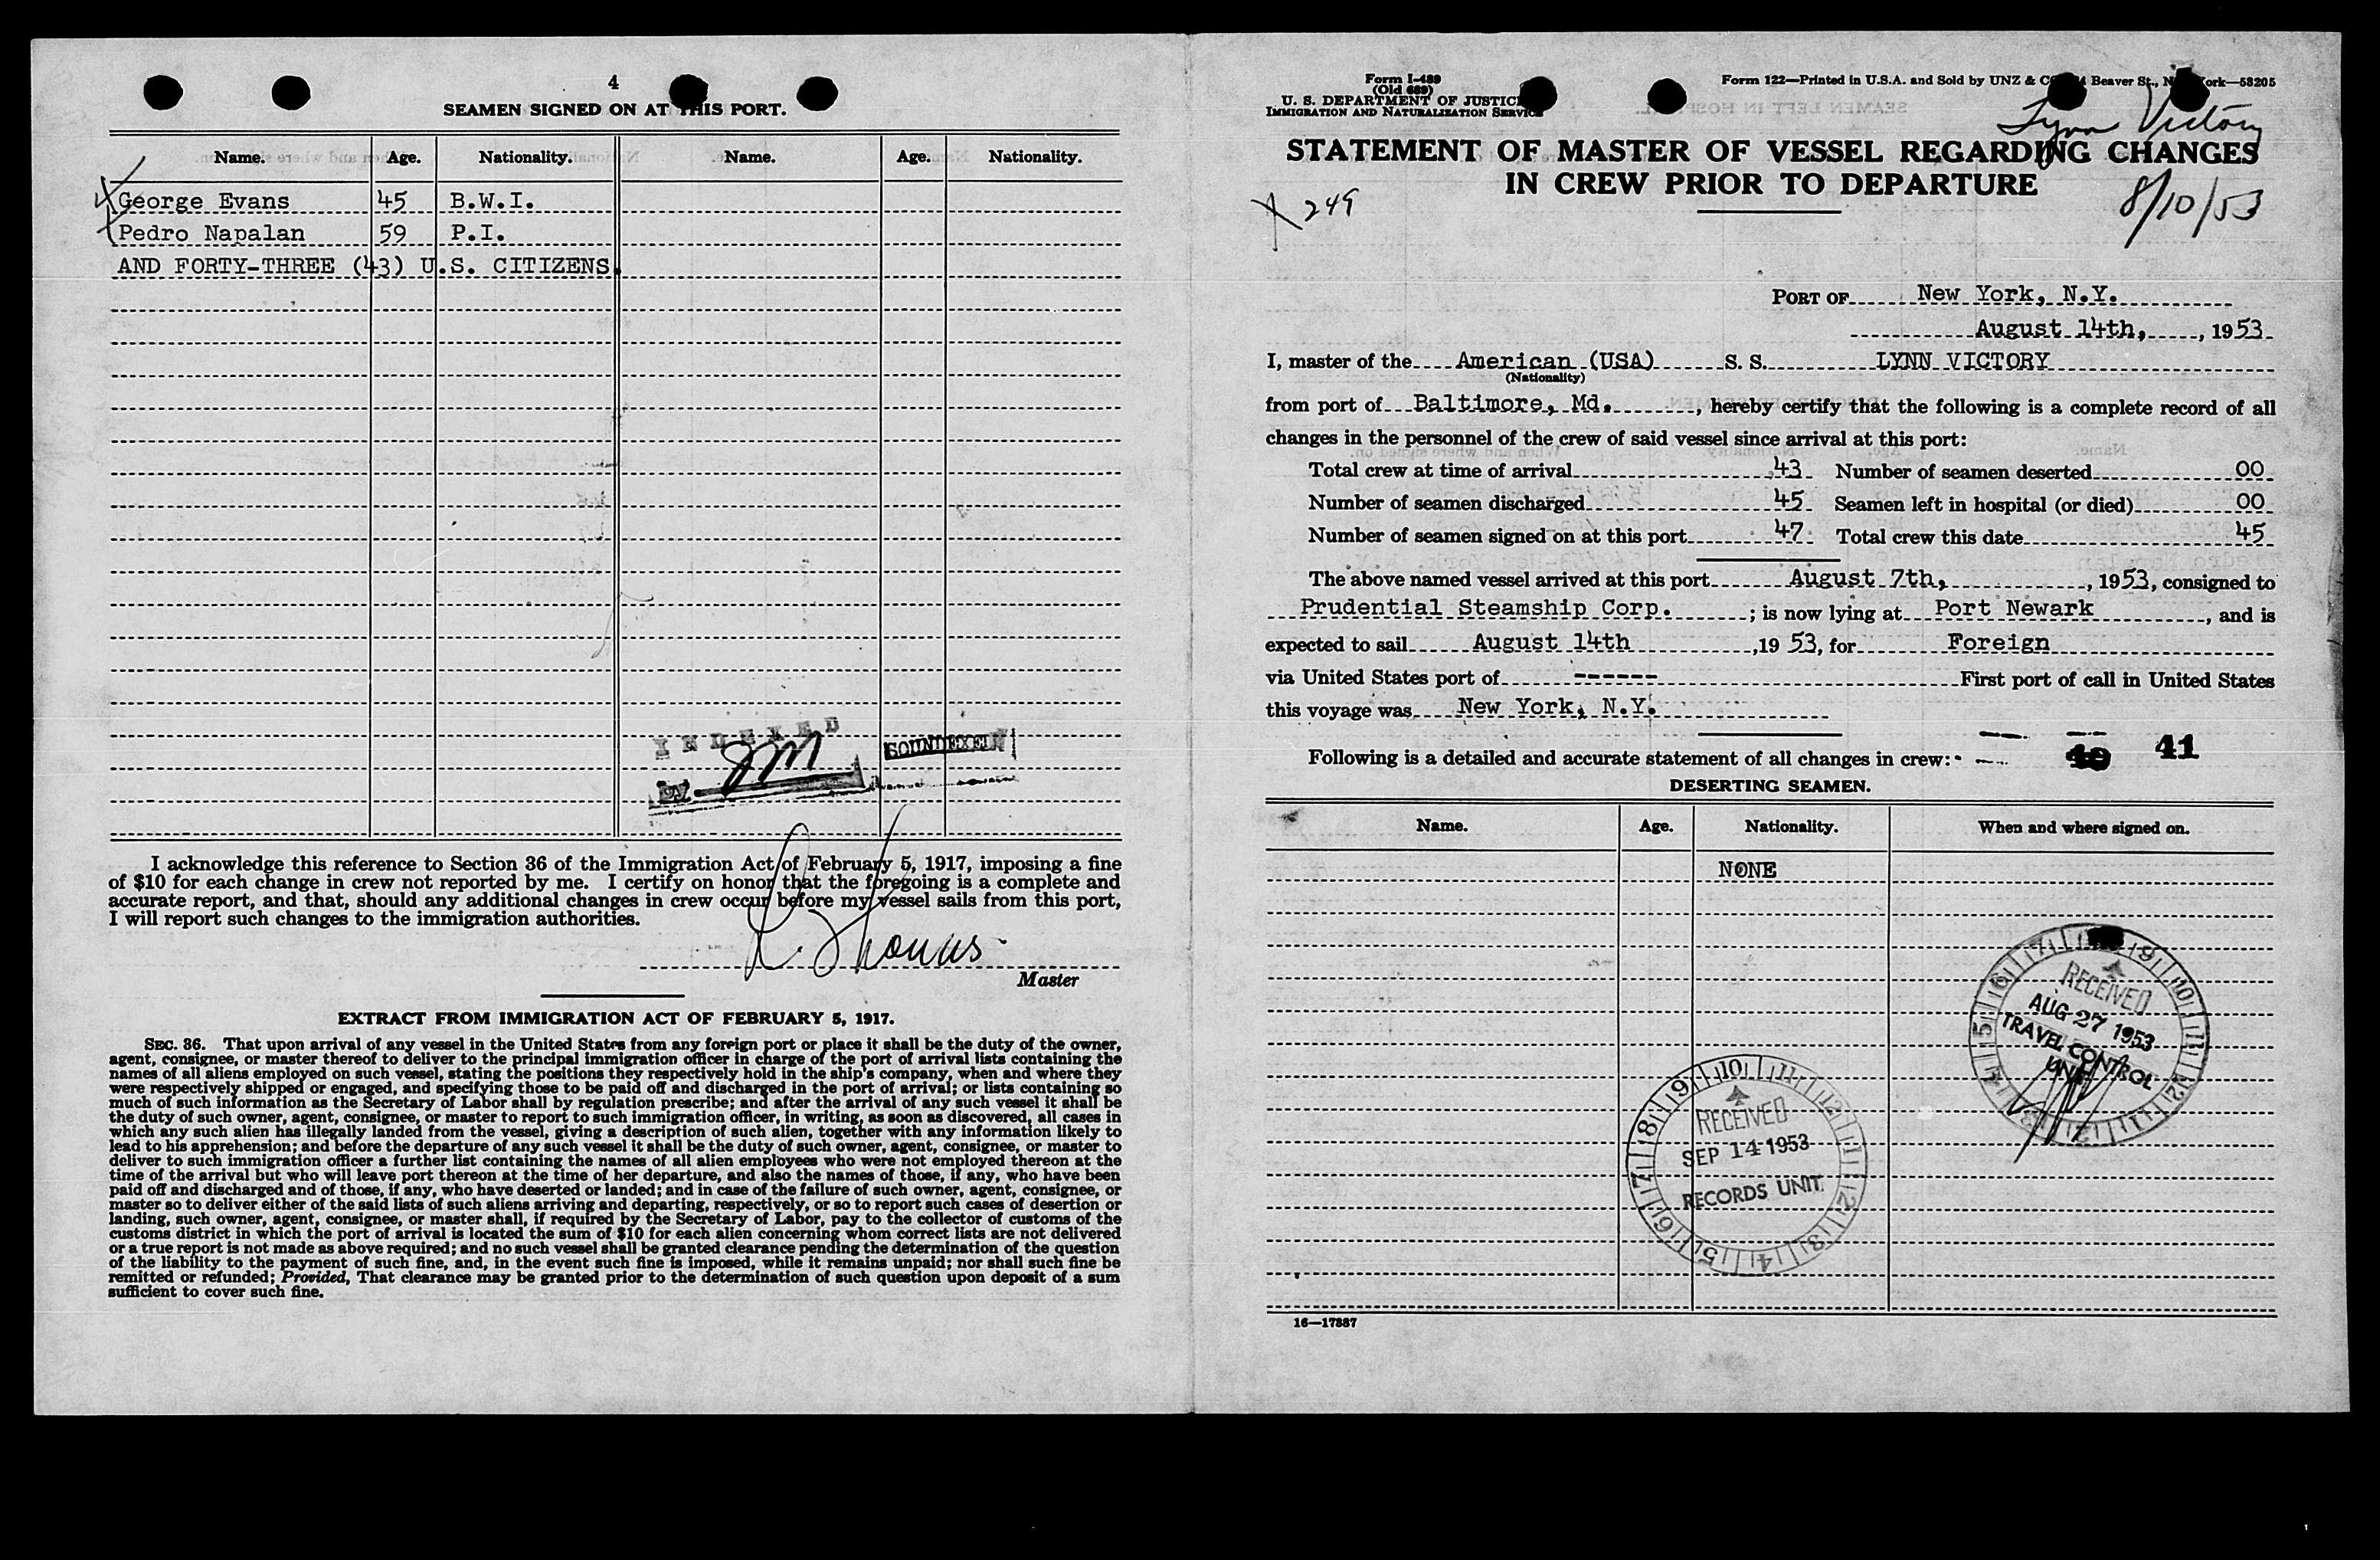 4
SEAMEN SIGNED ON AT THIS PORT.
Name. Age. Nationality. Name. Age. Nationality.
George Evans 45 B.W.I.
Pedro Napalan 59 P.I.
AND FORTY-THREE (43) U.S. CITIZENS.
INDEXED
SOUNDEXED
I acknowledge this reference to Section 36 of the Immigration Act of February 5, 1917, imposing a fine
of $10 for each change in crew not reported by me. I certify on honor that the foregoing is a complete and
accurate report, and that, should any additional changes in crew occur before my vessel sails from this port,
I will report such changes to the immigration authorities.
Master
EXTRACT FROM IMMIGRATION ACT OF FEBRUARY 5, 1917.
SEC. 36. That upon arrival of any vessel in the United States from any foreign port or place it shall be the duty of the owner,
agent, consignee, or master thereof to deliver to the principal immigration officer in charge of the port of arrival lists containing the
names of all aliens employed on such vessel, stating the positions they respectively hold in the ship's company, when and where they
were respectively shipped or engaged, and specifying those to be paid off and discharged in the port of arrival; or lists containing so
much of such information as the Secretary of Labor shall by regulation prescribe; and after the arrival of any such vessel it shall be
the duty of such owner, agent, consignee, or master to report to such immigration officer, in writing, as soon as discovered, all cases in
which any such alien has illegally landed from the vessel, giving a description of such alien, together with any information likely to
lead to his apprehension; and before the departure of any such vessel it shall be the duty of such owner, agent, consignee, or master to
deliver to such immigration officer a further list containing the names of all alien employees who were not employed thereon at the
time of the arrival but who will leave port thereon at the time of her departure, and also the names of those, if any, who have been
paid off and discharged and of those, if any, who have deserted or landed; and in case of the failure of such owner, agent, consignee, or
master so to deliver either of the said lists of such aliens arriving and departing, respectively, or so to report such cases of desertion or
landing, such owner, agent, consignee, or master shall, if required by the Secretary of Labor, pay to the collector of customs of the
customs district in which the port of arrival is located the sum of $10 for each alien concerning whom correct lists are not delivered
or a true report is not made as above required; and no such vessel shall be granted clearance pending the determination of the question
of the liability to the payment of such fine, and, in the event such fine is imposed, while it remains unpaid; nor shall such fine be
remitted or refunded; Provided, That clearance may be granted prior to the determination of such question upon deposit of a sum
sufficient to cover such fine.
Form I-489
(Old 689)
U. S. DEPARTMENT OF JUSTICE
IMMIGRATION AND NATURALIZATION SERVICE
Form 122—Printed in U.S.A. and Sold by UNZ & Beaver St., ork—58205
Lynn Victory
STATEMENT OF MASTER OF VESSEL REGARDING CHANGES
IN CREW PRIOR TO DEPARTURE
X 249
8/10/53
PORT OF New York, N.Y.
August 14th, , 1953
I, master of the American (USA) S. S. LYNN VICTORY
(Nationality)
from port of Baltimore, Md. , hereby certify that the following is a complete record of all
changes in the personnel of the crew of said vessel since arrival at this port:
Total crew at time of arrival 43 Number of seamen deserted 00
Number of seamen discharged 45 Seamen left in hospital (or died) 00
Number of seamen signed on at this port 47 Total crew this date 45
The above named vessel arrived at this port August 7th, , 1953, consigned to
Prudential Steamship Corp. ; is now lying at Port Newark , and is
expected to sail August 14th ,19 53, for Foreign
via United States port of ------ First port of call in United States
this voyage was New York, N.Y.
Following is a detailed and accurate statement of all changes in crew: 41
DESERTING SEAMEN.
Name. Age. Nationality. When and where signed on.
NONE
RECEIVED
AUG 27 1953
TRAVEL CONTROL
UNIT
RECEIVED
SEP 14 1953
RECORDS UNIT
16—17887